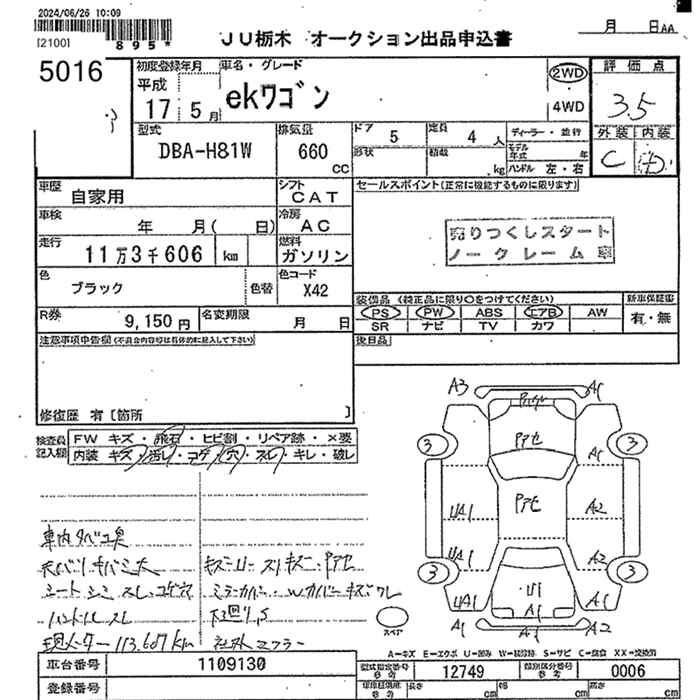 2024/06/26 10:09
[2100]
895*
JU栃木 オークション出品申込書
月 日AA
5016
初度登録年月
平成
17 5月
車名・グレード
ekワゴン
2WD
4WD
評価点
3.5
外装 内装
C
型式
DBA-H81W
排気量
660 CC
ドア 5
定員 4 人
形状
積載 kg
ディーラー・並行
モデル年式 年
ハンドル 左・右
車歴
自家用
シフト
CAT
車検
年 月( 日)
冷房
AC
走行
11万3千606 km
燃料
ガソリン
色
ブラック
色替
色コード
X42
R券
9,150円
名変期限
月 日
セールスポイント(正常に機能するものに限ります)
売りつくしスタート
ノークレーム車
装備品(純正品に限り○をつけてください)
PS PW ABS エアB AW
SR ナビ TV カワ
新車保証書
有・無
後日品
注意事項申告欄(不具合内容等は具体的に記入して下さい)
修復歴 有〔箇所 〕
検査員記入欄
FW キズ・飛石・ヒビ割・リペア跡・×要
内装 キズ・汚レ・コゲ・穴・スレ・キレ・破レ
シート シミ スレ コゲ穴
ハンドル スレ
現メーター 113,607km
社外ミラー
A3
A1
3
3
Pアセ
Pアセ
A1
UA1
A2
UA1
A2
3
3
U1
UA1
A1
A1
A1
A2
スペア
A=キズ E=エクボ U=凹み W=補修跡 S=サビ C=腐食 XX=交換済
車台番号
1109130
登録番号
型式指定番号 参考
12749
類別区分番号 参考
0006
長さ cm
幅 cm
高さ cm